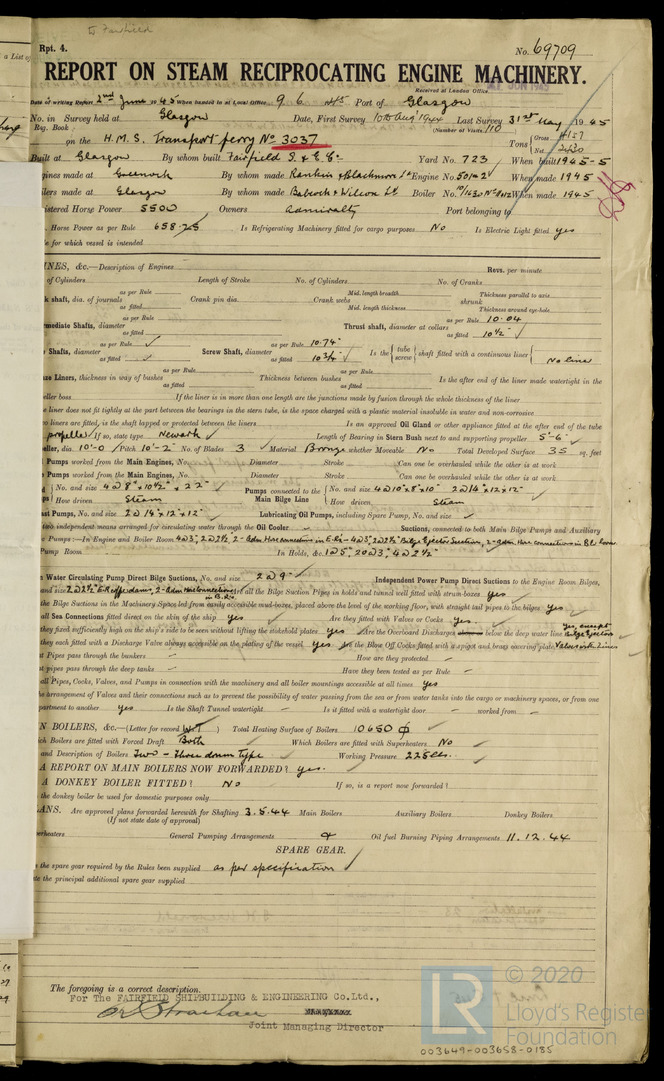 to Fairfield
a List of
Rpt. 4.
No. 69709
REPORT ON STEAM RECIPROCATING ENGINE MACHINERY.
Received at London Office
Date of writing Report 2nd June 1945 When handed in at Local Office 9. 6. 1945 Port of Glasgow
No. in Survey held at Glasgow Date, First Survey 10th Aug 1944 Last Survey 31st May 1945
Reg. Book. (Number of Visits 110)
on the H.M.S. Transport ferry No 3037 Tons Gross 4157 Net
Built at Glasgow By whom built Fairfield S. & E. Co Yard No. 723 When built 1945-5
Engines made at Greenock By whom made Rankin & Blackmore Ld Engine No. When made 1945
Boilers made at Glasgow By whom made Babcock & Wilcox Ld Boiler No. When made 1945
istered Horse Power 5500 Owners Admiralty Port belonging to
Horse Power as per Rule 658 Is Refrigerating Machinery fitted for cargo purposes No Is Electric Light fitted yes
e for which vessel is intended
INES, &c.—Description of Engines Revs. per minute
of Cylinders Length of Stroke No. of Cylinders No. of Cranks
k shaft, dia. of journals as per Rule as fitted Crank pin dia. Crank webs Mid. length breadth Mid. length thickness shrunk Thickness parallel to axis Thickness around eye-hole
rmediate Shafts, diameter as per Rule as fitted Thrust shaft, diameter at collars as per Rule 10.04 as fitted 10½"
Shafts, diameter as per Rule as fitted Screw Shaft, diameter as per Rule 10.74" as fitted 10¾" Is the { tube screw } shaft fitted with a continuous liner { No liner
ze Liners, thickness in way of bushes as per Rule as fitted Thickness between bushes as per Rule as fitted Is the after end of the liner made watertight in the
peller boss If the liner is in more than one length are the junctions made by fusion through the whole thickness of the liner
e liner does not fit tightly at the part between the bearings in the stern tube, is the space charged with a plastic material insoluble in water and non-corrosive
o liners are fitted, is the shaft lapped or protected between the liners Is an approved Oil Gland or other appliance fitted at the after end of the tube
propeller If so, state type Newark Length of Bearing in Stern Bush next to and supporting propeller 5'-6"
eller, dia. 10'-0 Pitch 10'-2" No. of Blades 3 Material Bronze whether Moveable No Total Developed Surface 35 sq. feet
Pumps worked from the Main Engines, No. Diameter Stroke Can one be overhauled while the other is at work
Pumps worked from the Main Engines, No. Diameter Stroke Can one be overhauled while the other is at work
No. and size 4 @ 8" x 10½" x 22" Pumps connected to the Main Bilge Line { No. and size 4 @ 10" x 8" x 10" 2 @ 14" x 12" x 12"
How driven Steam How driven Steam
ast Pumps, No. and size 2 @ 14" x 12" x 12" Lubricating Oil Pumps, including Spare Pump, No. and size
two independent means arranged for circulating water through the Oil Cooler Suctions, connected to both Main Bilge Pumps and Auxiliary
e Pumps:—In Engine and Boiler Room
Pump Room In Holds, &c. 1 @ 5", 20 @ 3", 4 @ 2½"
n Water Circulating Pump Direct Bilge Suctions, No. and size 2 @ 9" Independent Power Pump Direct Suctions to the Engine Room Bilges,
and size Are all the Bilge Suction Pipes in holds and tunnel well fitted with strum-boxes yes
the Bilge Suctions in the Machinery Spaces led from easily accessible mud-boxes, placed above the level of the working floor, with straight tail pipes to the bilges yes
all Sea Connections fitted direct on the skin of the ship yes Are they fitted with Valves or Cocks yes
they fixed sufficiently high on the ship's side to be seen without lifting the stokehold plates yes Are the Overboard Discharges above or below the deep water line Yes, except Bilge Ejectors
they each fitted with a Discharge Valve always accessible on the plating of the vessel yes Are the Blow Off Cocks fitted with a spigot and brass covering plate
at Pipes pass through the bunkers How are they protected
at pipes pass through the deep tanks Have they been tested as per Rule
all Pipes, Cocks, Valves, and Pumps in connection with the machinery and all boiler mountings accessible at all times yes
he arrangement of Valves and their connections such as to prevent the possibility of water passing from the sea or from water tanks into the cargo or machinery spaces, or from one
partment to another yes Is the Shaft Tunnel watertight Is it fitted with a watertight door worked from
N BOILERS, &c.—(Letter for record W.T ) Total Heating Surface of Boilers 10650
ich Boilers are fitted with Forced Draft Both Which Boilers are fitted with Superheaters No
and Description of Boilers Two - Three drum type Working Pressure 225 lbs.
A REPORT ON MAIN BOILERS NOW FORWARDED? yes.
A DONKEY BOILER FITTED? No If so, is a report now forwarded?
the donkey boiler be used for domestic purposes only
ANS. Are approved plans forwarded herewith for Shafting 3.5.44 Main Boilers Auxiliary Boilers Donkey Boilers
(If not state date of approval)
erheaters General Pumping Arrangements Oil fuel Burning Piping Arrangements 11.12.44
SPARE GEAR.
s the spare gear required by the Rules been supplied as per specification
te the principal additional spare gear supplied
The foregoing is a correct description.
For The FAIRFIELD SHIPBUILDING & ENGINEERING Co.Ltd.,
Joint Managing Director
LR © 2020
Lloyd's Register
Foundation
003649-003658-0185